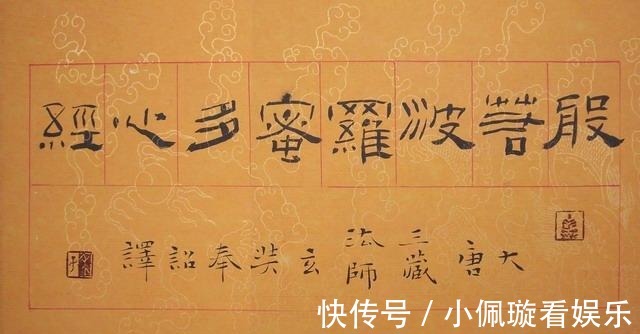 般若波羅蜜多心經
大唐三藏法師玄奘奉詔譯
快传号 / 小佩璇看娱乐